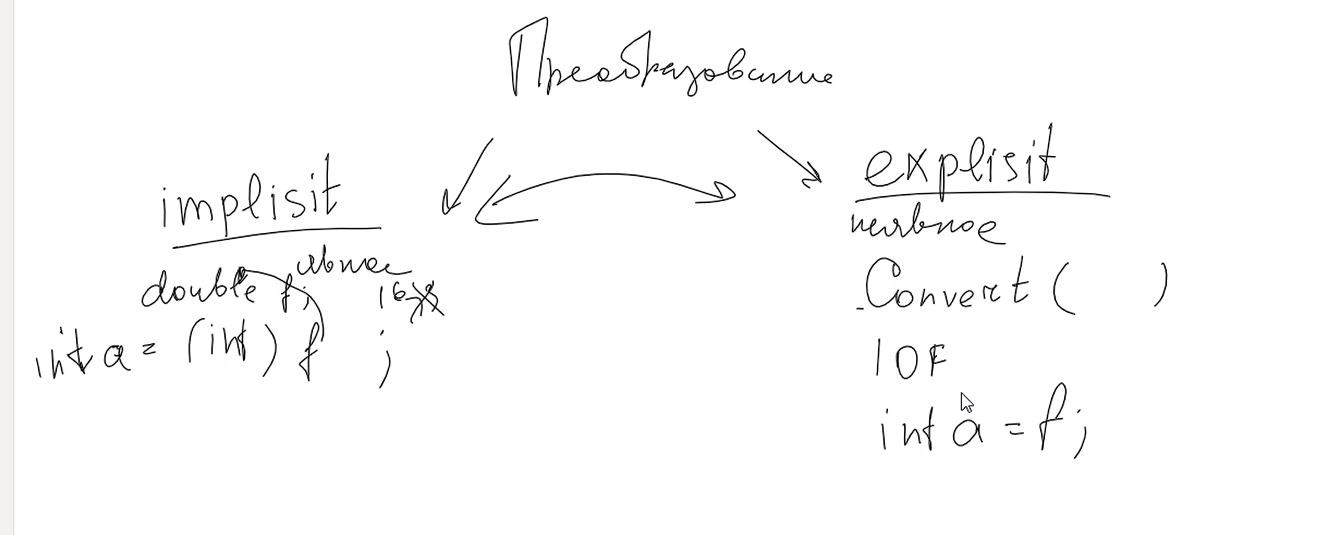 Преобразование
implisit
явное
double f;
16
int a = (int) f ;
explisit
неявное
Convert ( )
10F
int a = f;